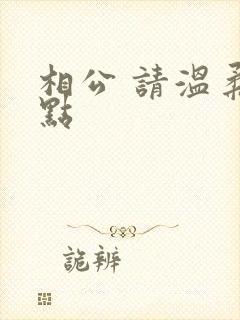 相公 請溫柔
點
詭辨